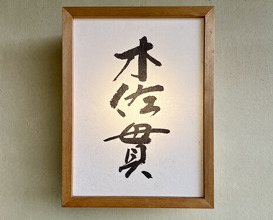 木佐貫